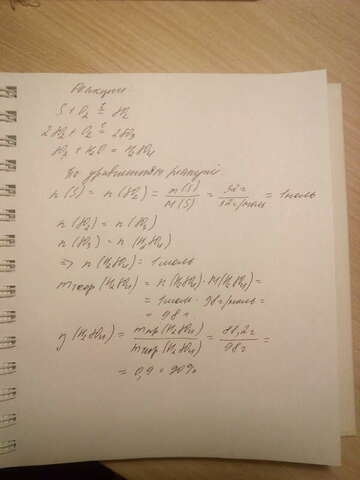 Реакции:
S + O₂ =ᵗ SO₂
2SO₂ + O₂ =ᵗ 2SO₃
SO₃ + H₂O = H₂SO₄
По уравнениям реакций
n(S) = n(SO₂) = m(S)/M(S) = 32г/32г/моль = 1моль
n(SO₂) = n(SO₃)
n(SO₃) = n(H₂SO₄)
=> n(H₂SO₄) = 1моль
mтеор(H₂SO₄) = n(H₂SO₄)·M(H₂SO₄) =
= 1моль · 98г/моль =
= 98г
η(H₂SO₄) = mпр(H₂SO₄)/mтеор(H₂SO₄) = 88,2г/98г =
= 0,9 = 90%